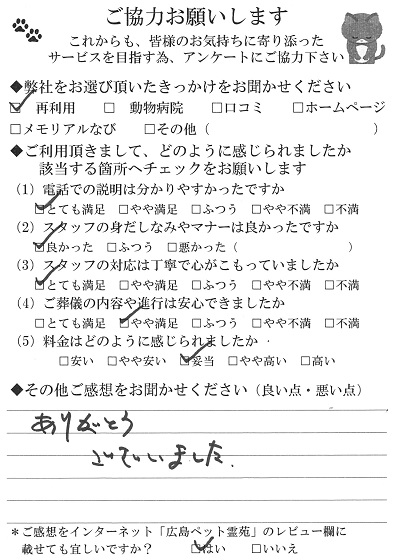 ご協力お願いします
これからも、皆様のお気持ちに寄り添った
サービスを目指す為、アンケートにご協力下さい
◆弊社をお選び頂いたきっかけをお聞かせください
☑ 再利用 □ 動物病院 □口コミ □ホームページ
□メモリアルなび □その他（ ）
◆ご利用頂きまして、どのように感じられましたか
該当する箇所へチェックをお願いします
（1）電話での説明は分かりやすかったですか
☑とても満足 □やや満足 □ふつう □やや不満 □不満
（2）スタッフの身だしなみやマナーは良かったですか
☑良かった □ふつう □悪かった（ ）
（3）スタッフの対応は丁寧で心がこもっていましたか
☑とても満足 □やや満足 □ふつう □やや不満 □不満
（4）ご葬儀の内容や進行は安心できましたか
□とても満足 ☑やや満足 □ふつう □やや不満 □不満
（5）料金はどのように感じられましたか
□安い □やや安い ☑妥当 □やや高い □高い
◆その他ご感想をお聞かせください（良い点・悪い点）
ありがとう
ございました。
＊ご感想をインターネット「広島ペット霊苑」のレビュー欄に
載せても宜しいですか？ ☑はい □いいえ